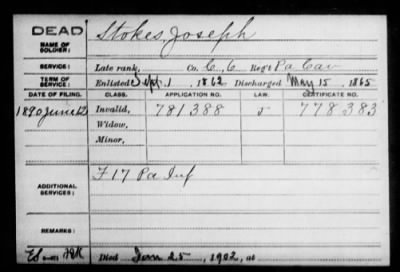 DEAD
NAME OF SOLDIER: Stokes, Joseph
SERVICE: Late rank, Co. C, 6 Reg't Pa Cav
TERM OF SERVICE: Enlisted Sept. 1, 1862 Discharged May 15, 1865
DATE OF FILING. CLASS. APPLICATION NO. LAW. CERTIFICATE NO.
1890 June 12 Invalid, 781388 5 778383
Widow,
Minor,
ADDITIONAL SERVICES: F 17 Pa Inf
REMARKS:
Died Jan 25, 1902, at